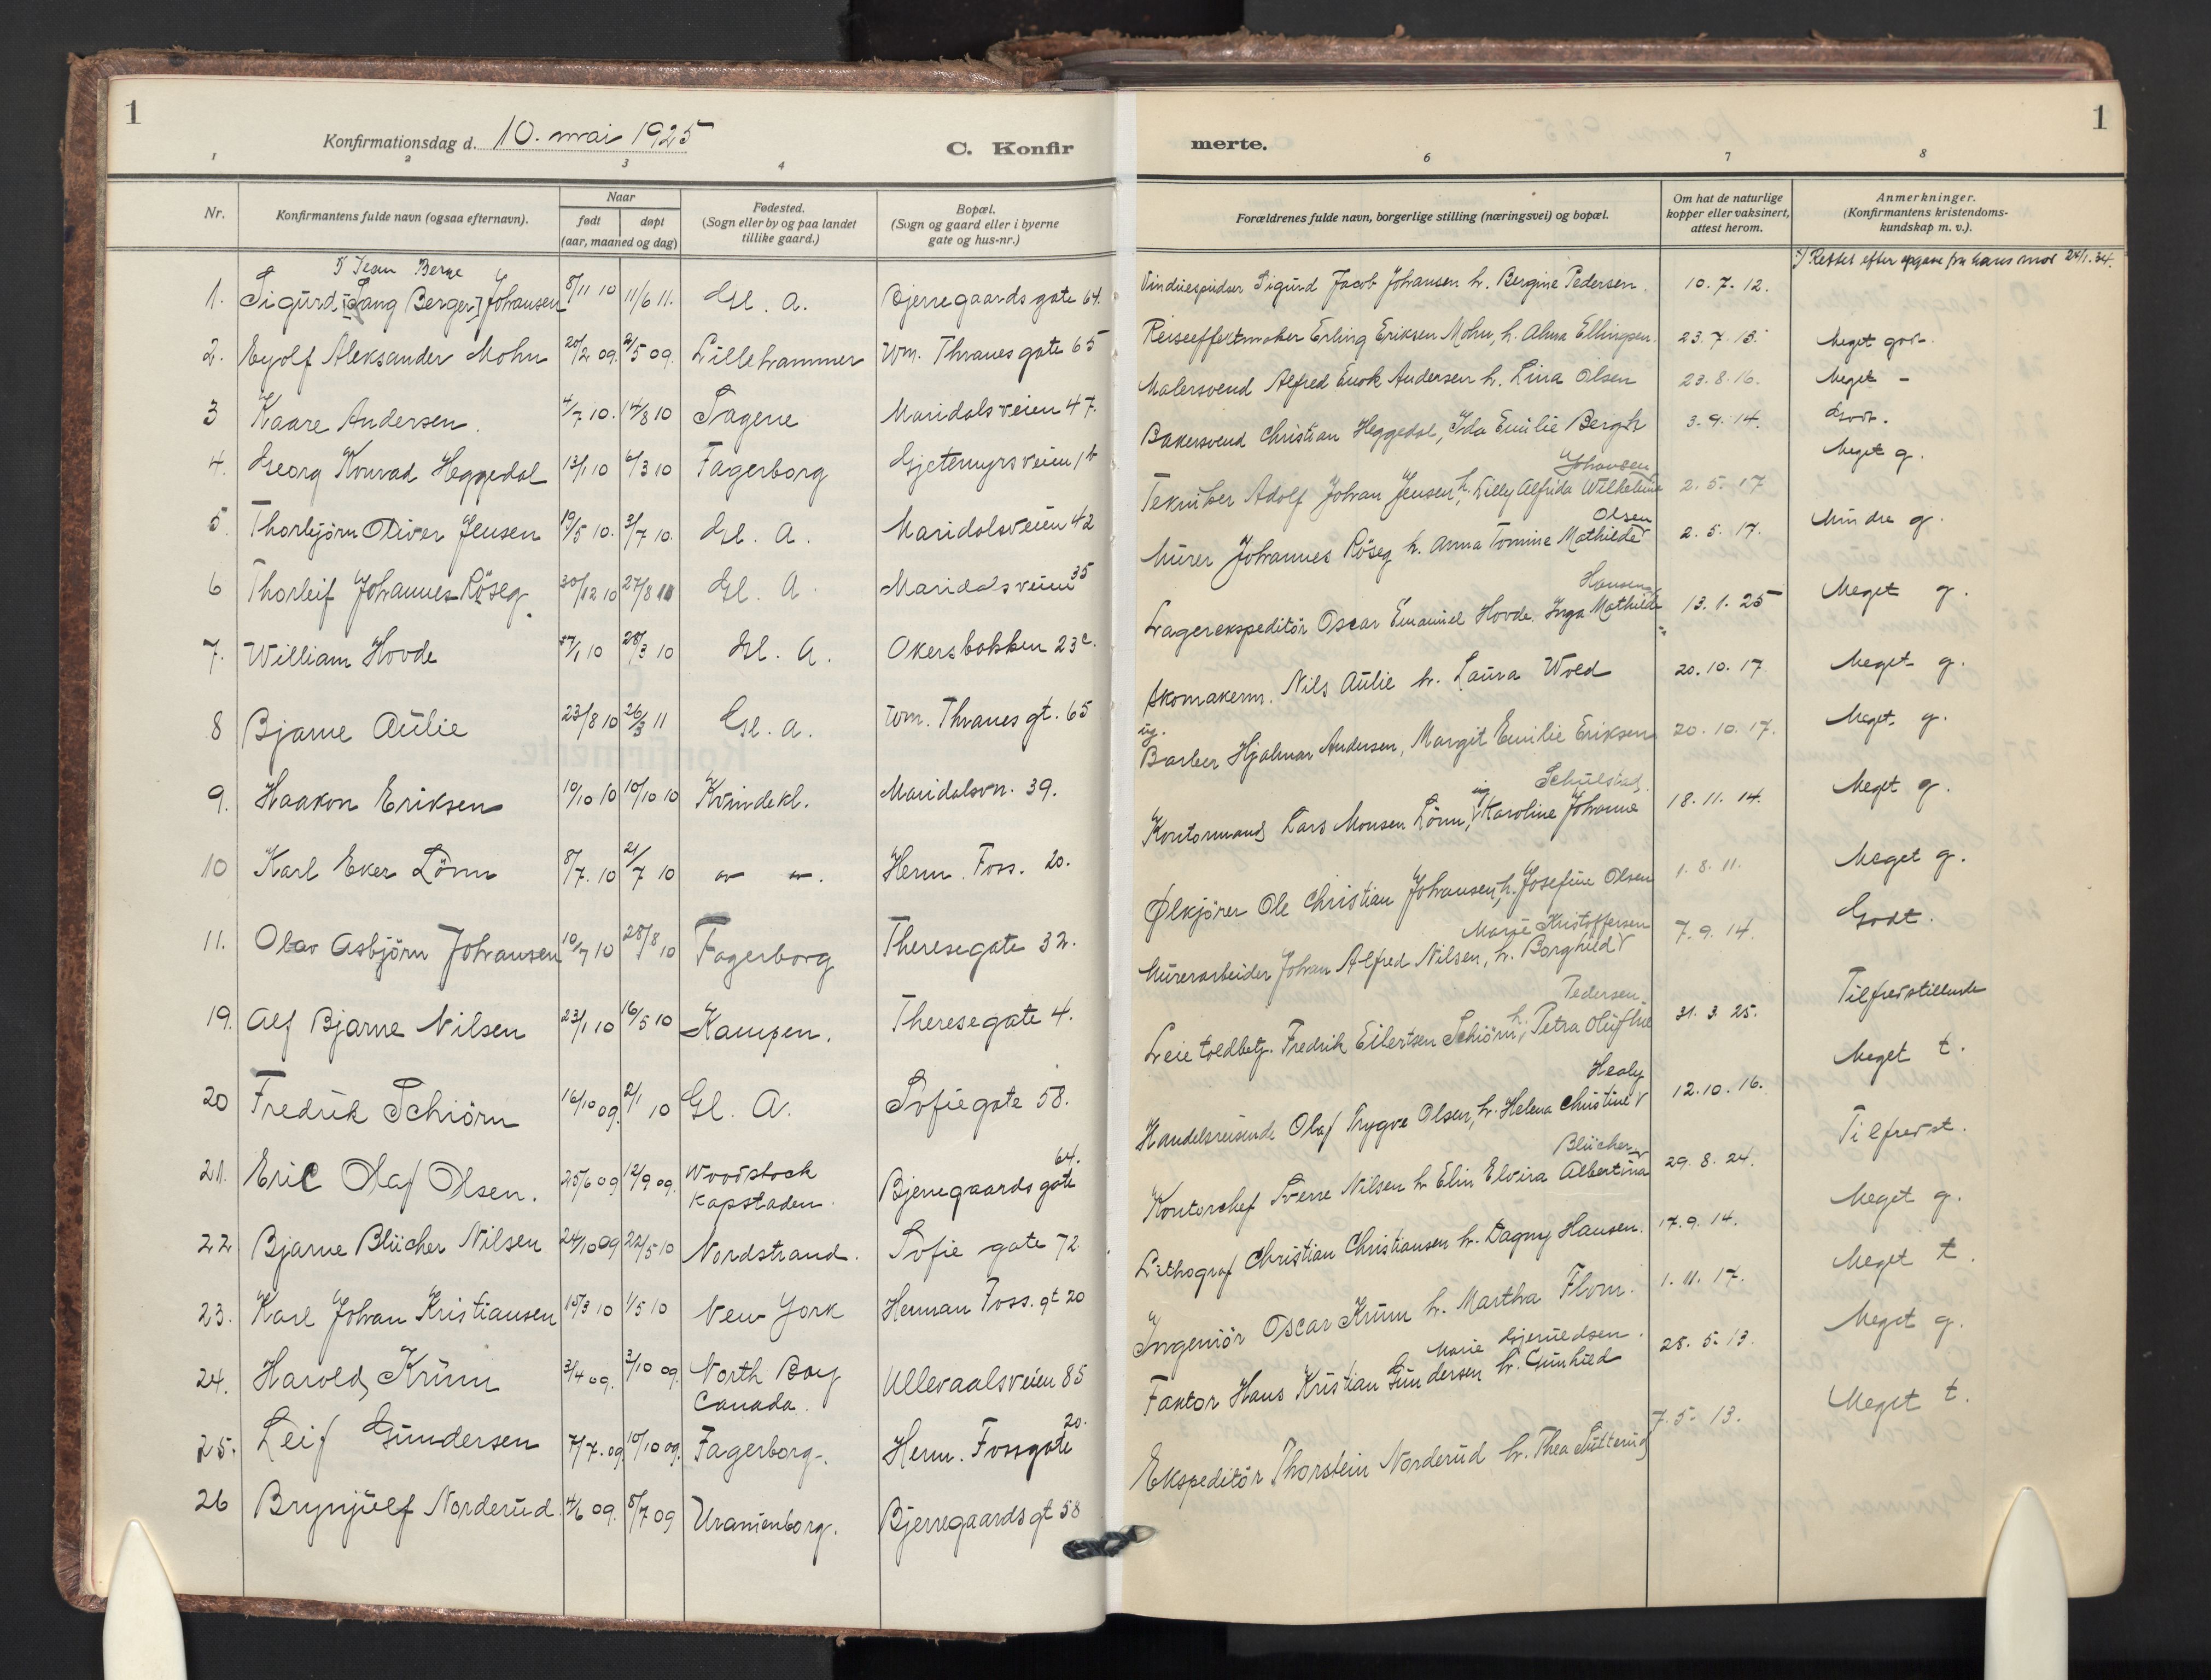 1
Konfirmationsdag d. 10. mai 1925
C. Konfir
1 2 3 4
Nr.
Konfirmantens fulde navn (ogsaa efternavn).
Naar
født døpt
(aar, maaned og dag)
Fødested.
(Sogn eller by og paa landet
tillike gaard.)
Bopæl.
(Sogn og gaard eller i byerne
gate og hus-nr.)
Berge
1. Sigurd [Lang Berger] Johansen 8/11 10 11/6 11. Gl. A. Bjerregaards gate 64.
2. Eyolf Aleksander Mohn 20/2 09. 2/5 09. Lillehammer Wm. Thranes gate 65
3 Kaare Andersen. 4/7 10. 14/8 10 Sagene Maridalsveien 47.
4. Georg Konrad Heggedal 13/1 10 6/3 10 Fagerborg Gjetemyrsveien 1b
5. Thorbjørn Oliver Jensen 19/5 10. 3/7 10. Gl. A. Maridalsveien 42
6 Thorleif Johannes Röseg. 30/12 10 27/8 11 Gl. A. Maridalsveien 35
7. William Hovde 10 28/3 10 Gl. A. Akersbakken 23c.
8 Bjarne Aulie 23/8 10 26/3 11 Gl. A. Wm. Thranes gt. 65
9. Haakon Eriksen 10/10 10 10/10 10 Kvindekl. Maridalsvn. 39.
10 Karl Eker Lönn 8/7. 10 21/7 10 Herm. Foss. 20.
11. Olav Asbjörn Johansen 10/7 10 28/8 10 Fagerborg Theresegate 32.
19. Alf Bjarne Nilsen 23/1 10 16/5 10 Kampen. Theresegate 4.
20 Fredrik Schiörn 16/10 09. 2/1 10 Gl. A. Sofiegate 58.
21. Eric Olaf Olsen. 25/6 09 12/9 09. Woodstock
Kapstaden. Bjerregaards gate 64.
22 Bjarne Blücher Nilsen 24/10 09 22/5-10 Nordstrand. Sofie gate 72.
23. Karl Johan Kristiansen 15/3 10 1/5 10 New York Herman Foss. gt 20
24. Harold Krum 3/4 09. 3/10 09. North Bay
Canada. Ullevaalsveien 85
25. Leif Gundersen 7/7. 09 10/10 09. Fagerborg. Herm. Fossgate 20.
26 Brynjulf Norderud 4/6 09. 5/7 09 Uranienborg. Bjerregaards gt 58
1
merte.
6 7 8
Forældrenes fulde navn, borgerlige stilling (næringsvei) og bopæl.
Om hat de naturlige
kopper eller vaksinert,
attest herom.
Anmerkninger.
(Konfirmantens kristendoms-
kundskap m. v.).
Rettet efter opgave fra hans mor 24/1. 34.
Vinduespudser Sigurd Jacob Johansen h. Bergine Pedersen. 10. 7. 12.
Reiseeffektmaker Erling Eriksen Mohn, h. Alma Ellingsen. 23. 7. 13. Meget god.
Malersvend Alfred Enok Andersen h. Lina Olsen 23. 8. 16. Meget -
Bakersvend Christian Heggedal, Ida Emilie Bergh 3. 9. 14. Godt.
Meget g.
Johansen
Tekniker Adolf Johan Jensen, h. Lilly Alfrida Wilhelmine 2. 5. 17
Olsen
Murer Johannes Röseg h. Anna Tomine Mathilde 2. 5. 17. Mindre g.
Hansen
Lagerekspeditör Oscar Emanuel Hovde. Inga Mathilde 13. 1. 25 Meget g.
Skomakerm. Nils Aulie h. Laura Wold 20. 10. 17 Meget g.
ug.
Barber Hjalmar Andersen, Margit Emilie Eriksen 20. 10. 17. Meget. g.
Schulstad.
Kontormand Lars Monsen Lönn, ug Karoline Johanne 18. 11. 14. Meget g.
Ølkjörer Ole Christian Johansen, h. Josefine Olsen 1. 8. 11. Meget g.
Marie Kristoffersen
Murerarbeider Johan Alfred Nilsen, h. Borghild 7. 9. 14. Godt.
Pedersen
Leie toldbetj. Fredrik Eilertsen Schiörn, h. Petra Olufine 31. 3. 25. Tilfredstillende
Healy
Handelsreisende Olaf Trygve Olsen, h. Helena Christine 12. 10. 16. Meget t.
Blücher
Kontorchef Sverre Nilsen h Elin Elvira Albertina 29. 8. 24. Tilfredst.
Lithograf Christian Christiansen h. Dagny Hansen. 17. 9. 14. Meget g.
Ingeniör Oscar Krum h. Martha Flom. 1. 11. 17. Meget t.
Marie
Faktor Hans Kristian Gundersen h. Gunhild 28. 5. 13. Meget g.
Ekspeditör Thorstein Norderud h. Thea Sutterud 7. 5. 13. Meget t.